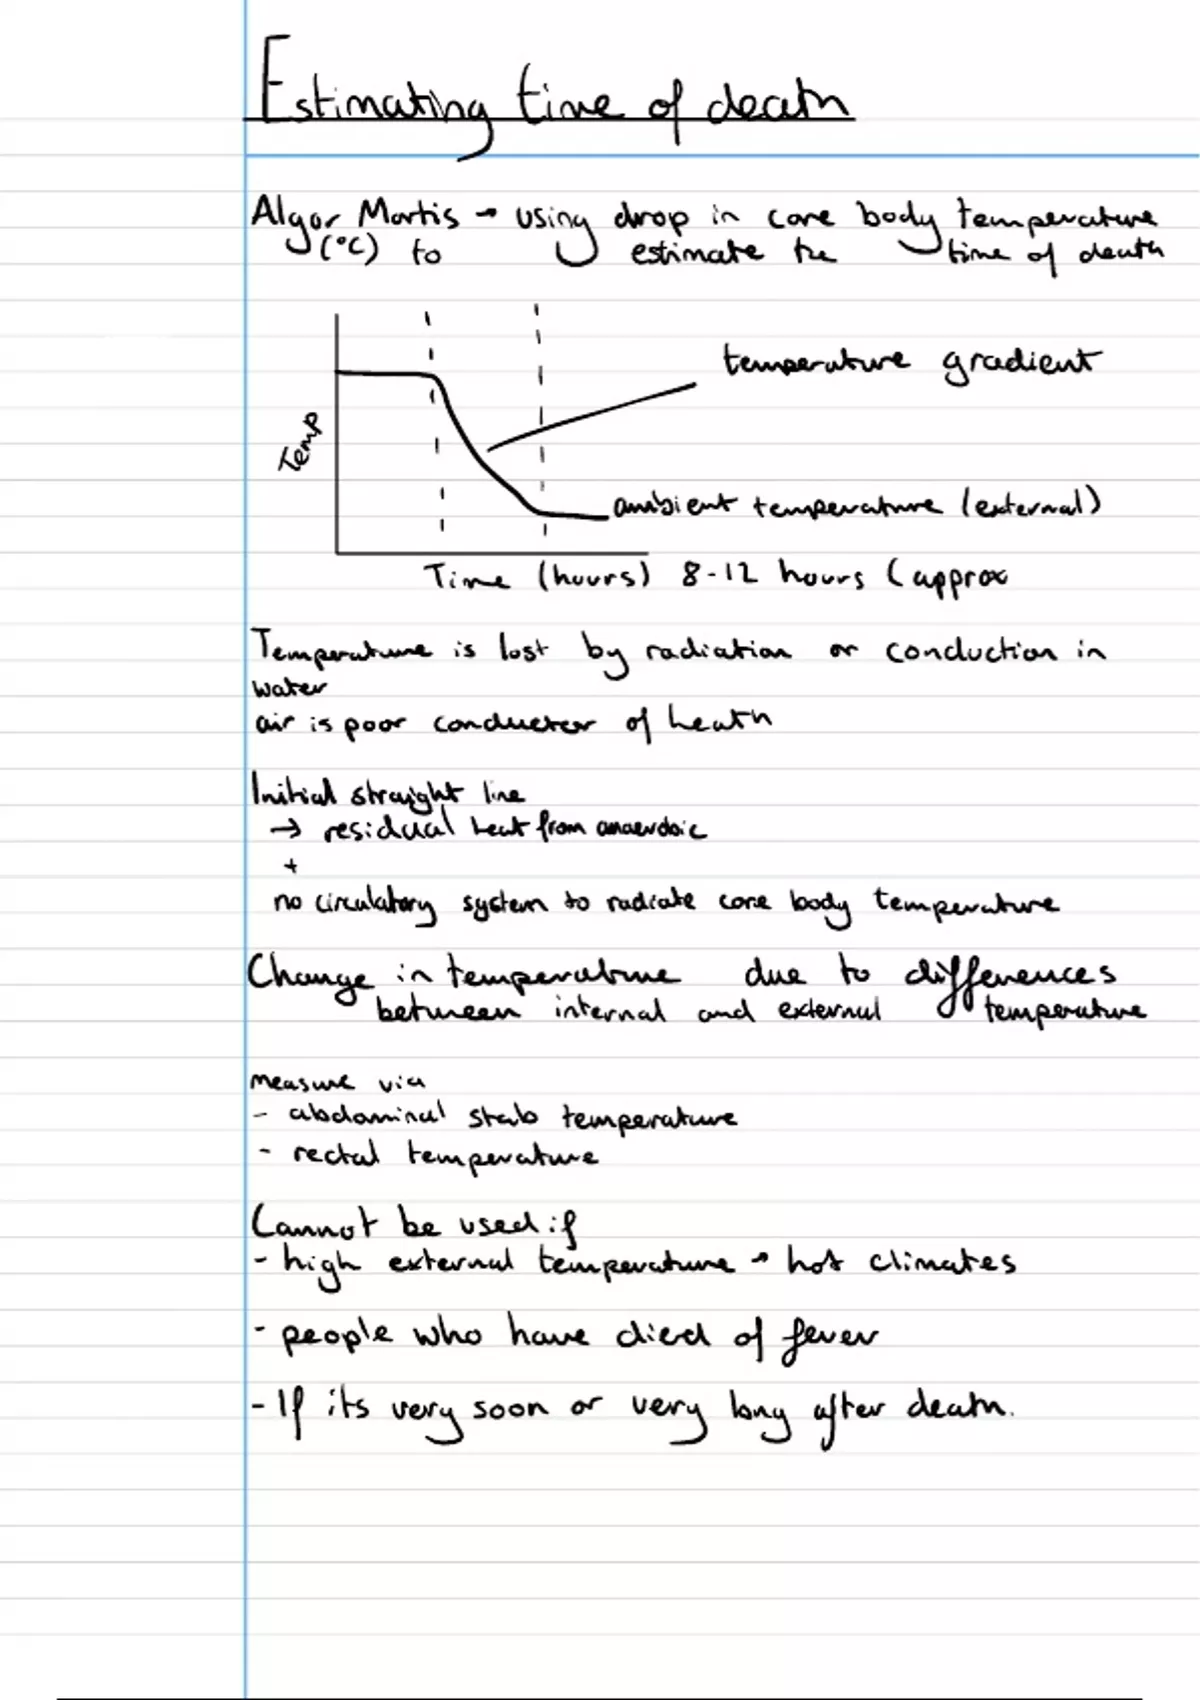 Estimating time of death
Algor Mortis → using drop in core body temperature
(°C) to estimate the time of death
temperature gradient
Temp
ambient temperature (external)
Time (hours) 8-12 hours (approx
Temperature is lost by radiation or conduction in
water
air is poor conductor of heath
Initial straight line
→ residual heat from anaerobic
+
no circulatory system to radiate core body temperature
Change in temperature due to differences
between internal and external temperature
measure via
- abdominal stab temperature
- rectal temperature
Cannot be used if
- high external temperature → hot climates
- people who have died of fever
- If its very soon or very long after death.